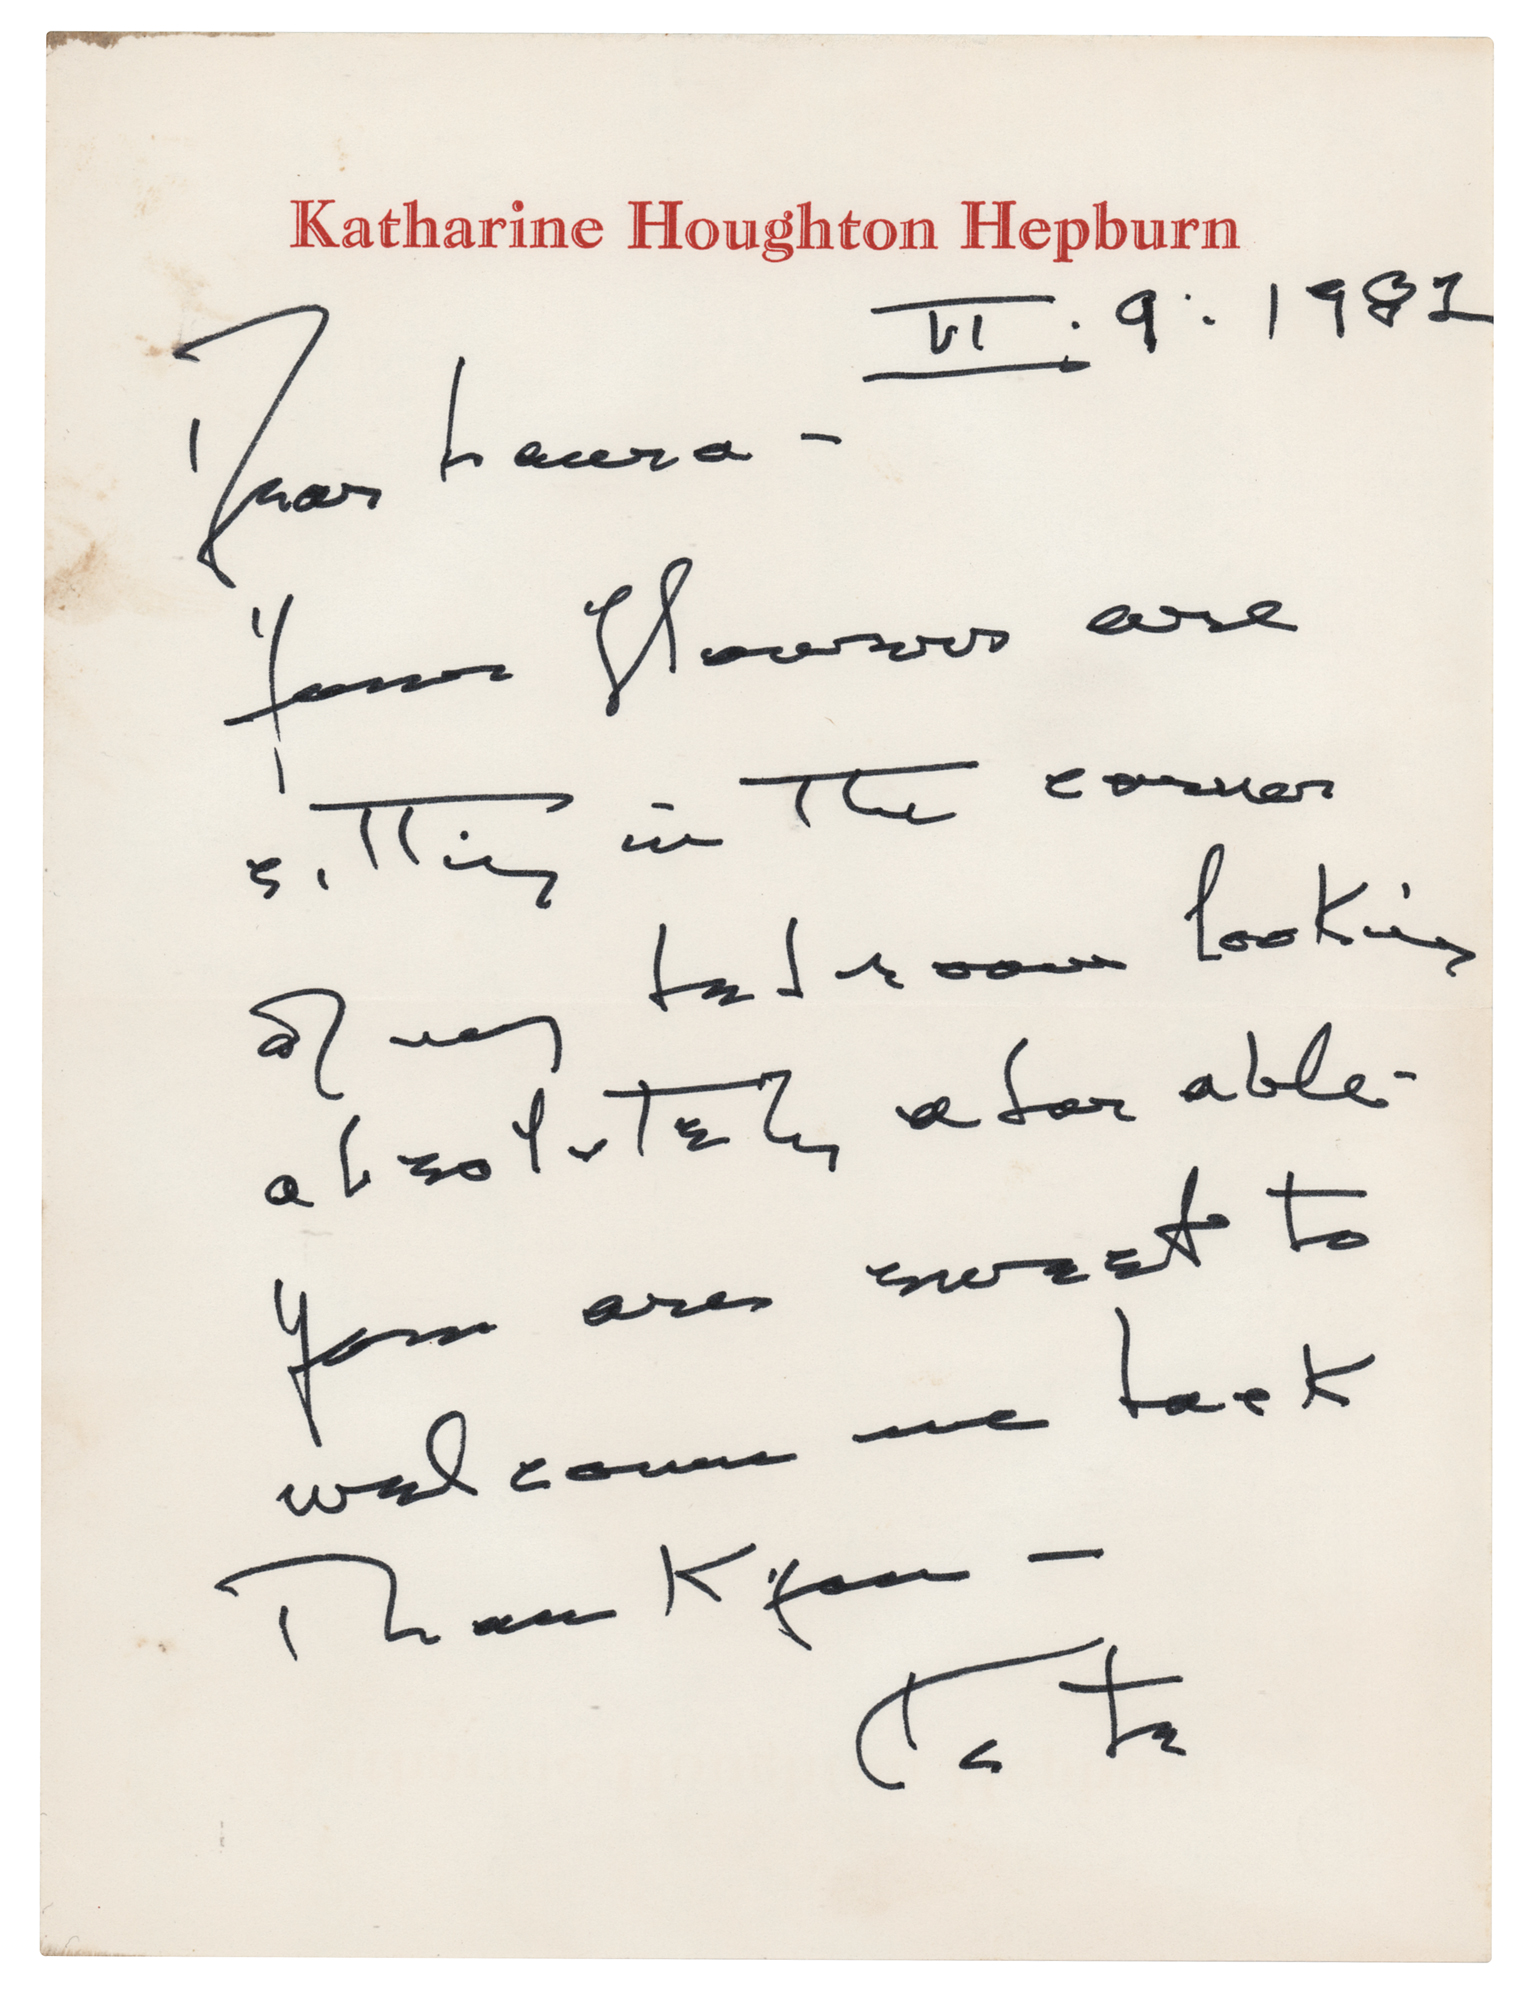 Katharine Houghton Hepburn
VI. 9. 1981
Dear Laura –
Your flowers are
sitting in the corner
of my bedroom looking
absolutely adorable –
You are sweet to
welcome me back
Thank you –
Kate